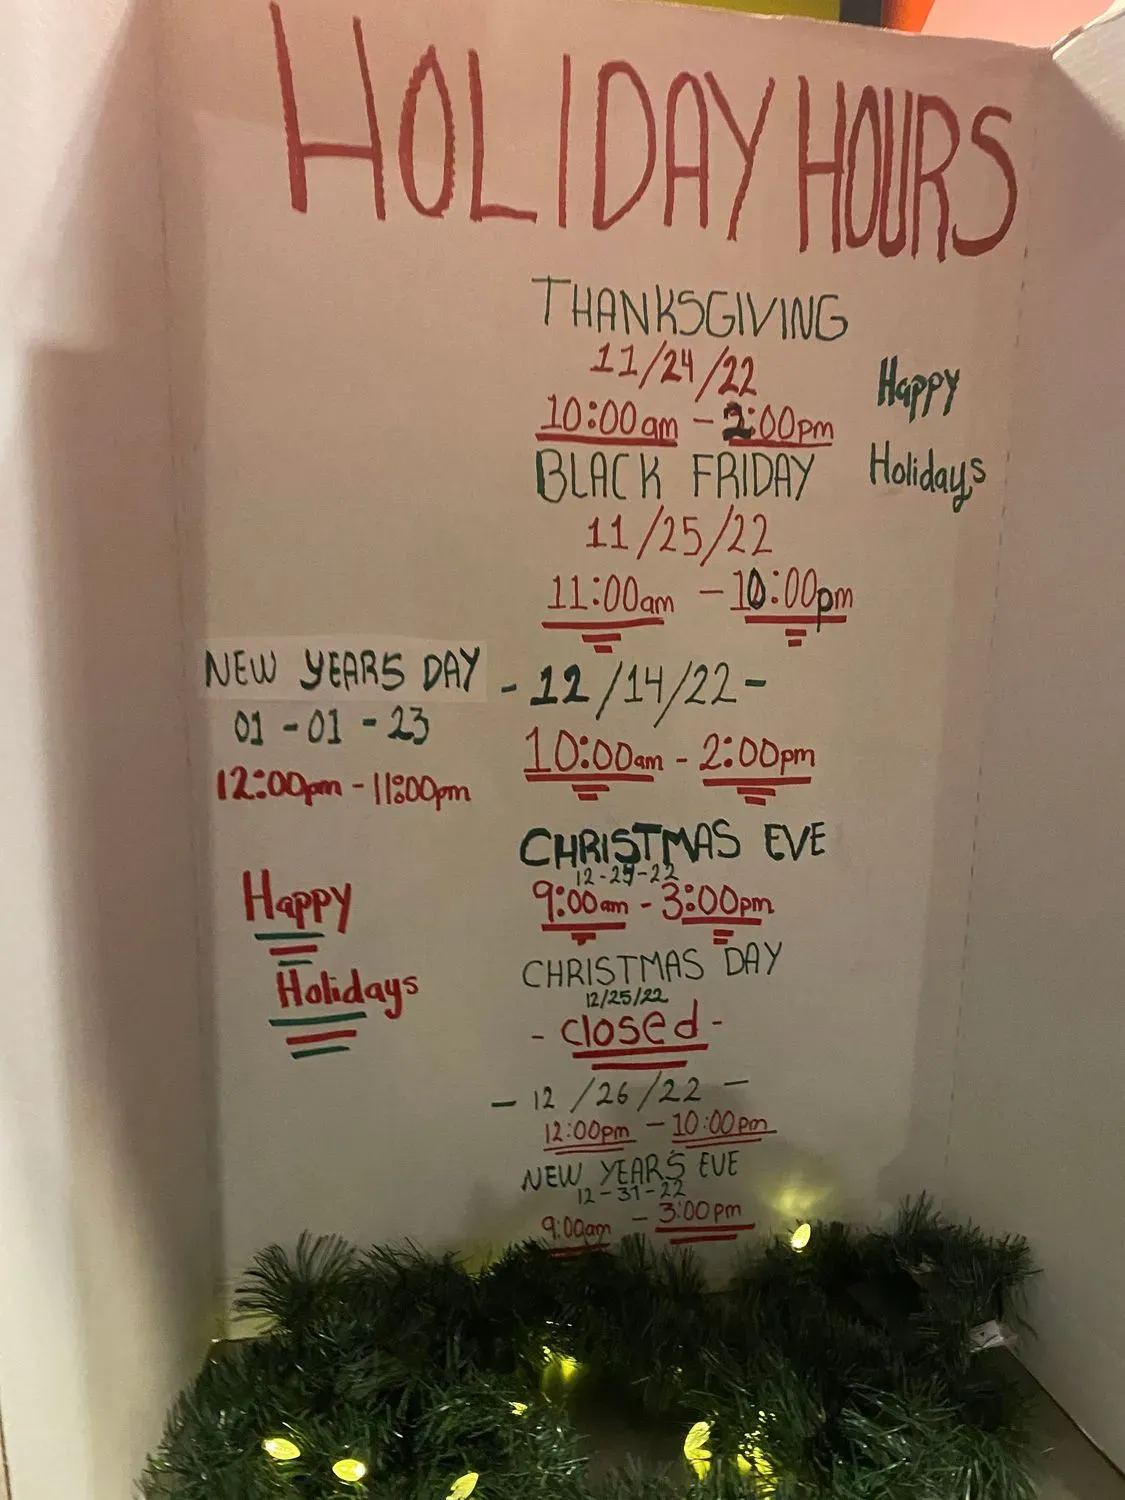 HOLIDAY HOURS
THANKSGIVING
11/24/22
10:00am - 2:00pm
Happy
Holidays
BLACK FRIDAY
11/25/22
11:00am - 10:00pm
- 12/14/22 -
10:00am - 2:00pm
CHRISTMAS EVE
12-24-22
9:00am - 3:00pm
CHRISTMAS DAY
12/25/22
- closed -
- 12/26/22 -
12:00pm - 10:00pm
NEW YEARS EVE
12-31-22
9:00am - 3:00pm
NEW YEARS DAY
01-01-23
12:00pm - 11:00pm
Happy
Holidays